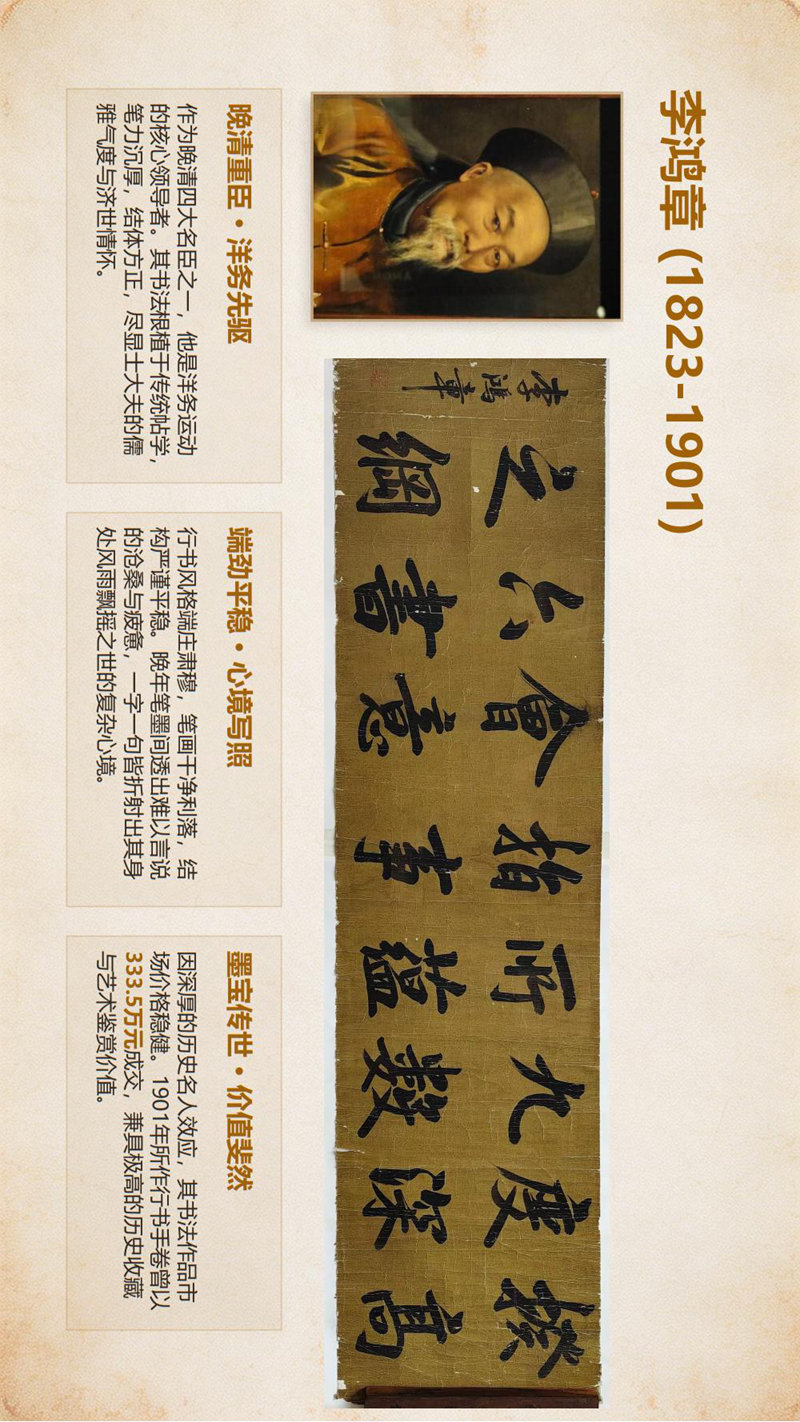 李鸿章 (1823-1901)
揆高
度深
九數
所蘊
指事
會意
六書
之綱
李鴻章
晚清重臣・洋务先驱
作为晚清四大名臣之一，他是洋务运动
的核心领导者。其书法根植于传统帖学，
笔力沉厚，结体方正，尽显士大夫的儒
雅气度与济世情怀。
端劲平稳・心境写照
行书风格端庄肃穆，笔画干净利落，结
构严谨平稳。晚年笔墨间透出难以言说
的沧桑与疲惫，一字一句皆折射出其身
处风雨飘摇之世的复杂心境。
墨宝传世・价值斐然
因深厚的历史名人效应，其书法作品市
场价格稳健。1901年所作行书手卷曾以
333.5万元成交，兼具极高的历史收藏
与艺术鉴赏价值。